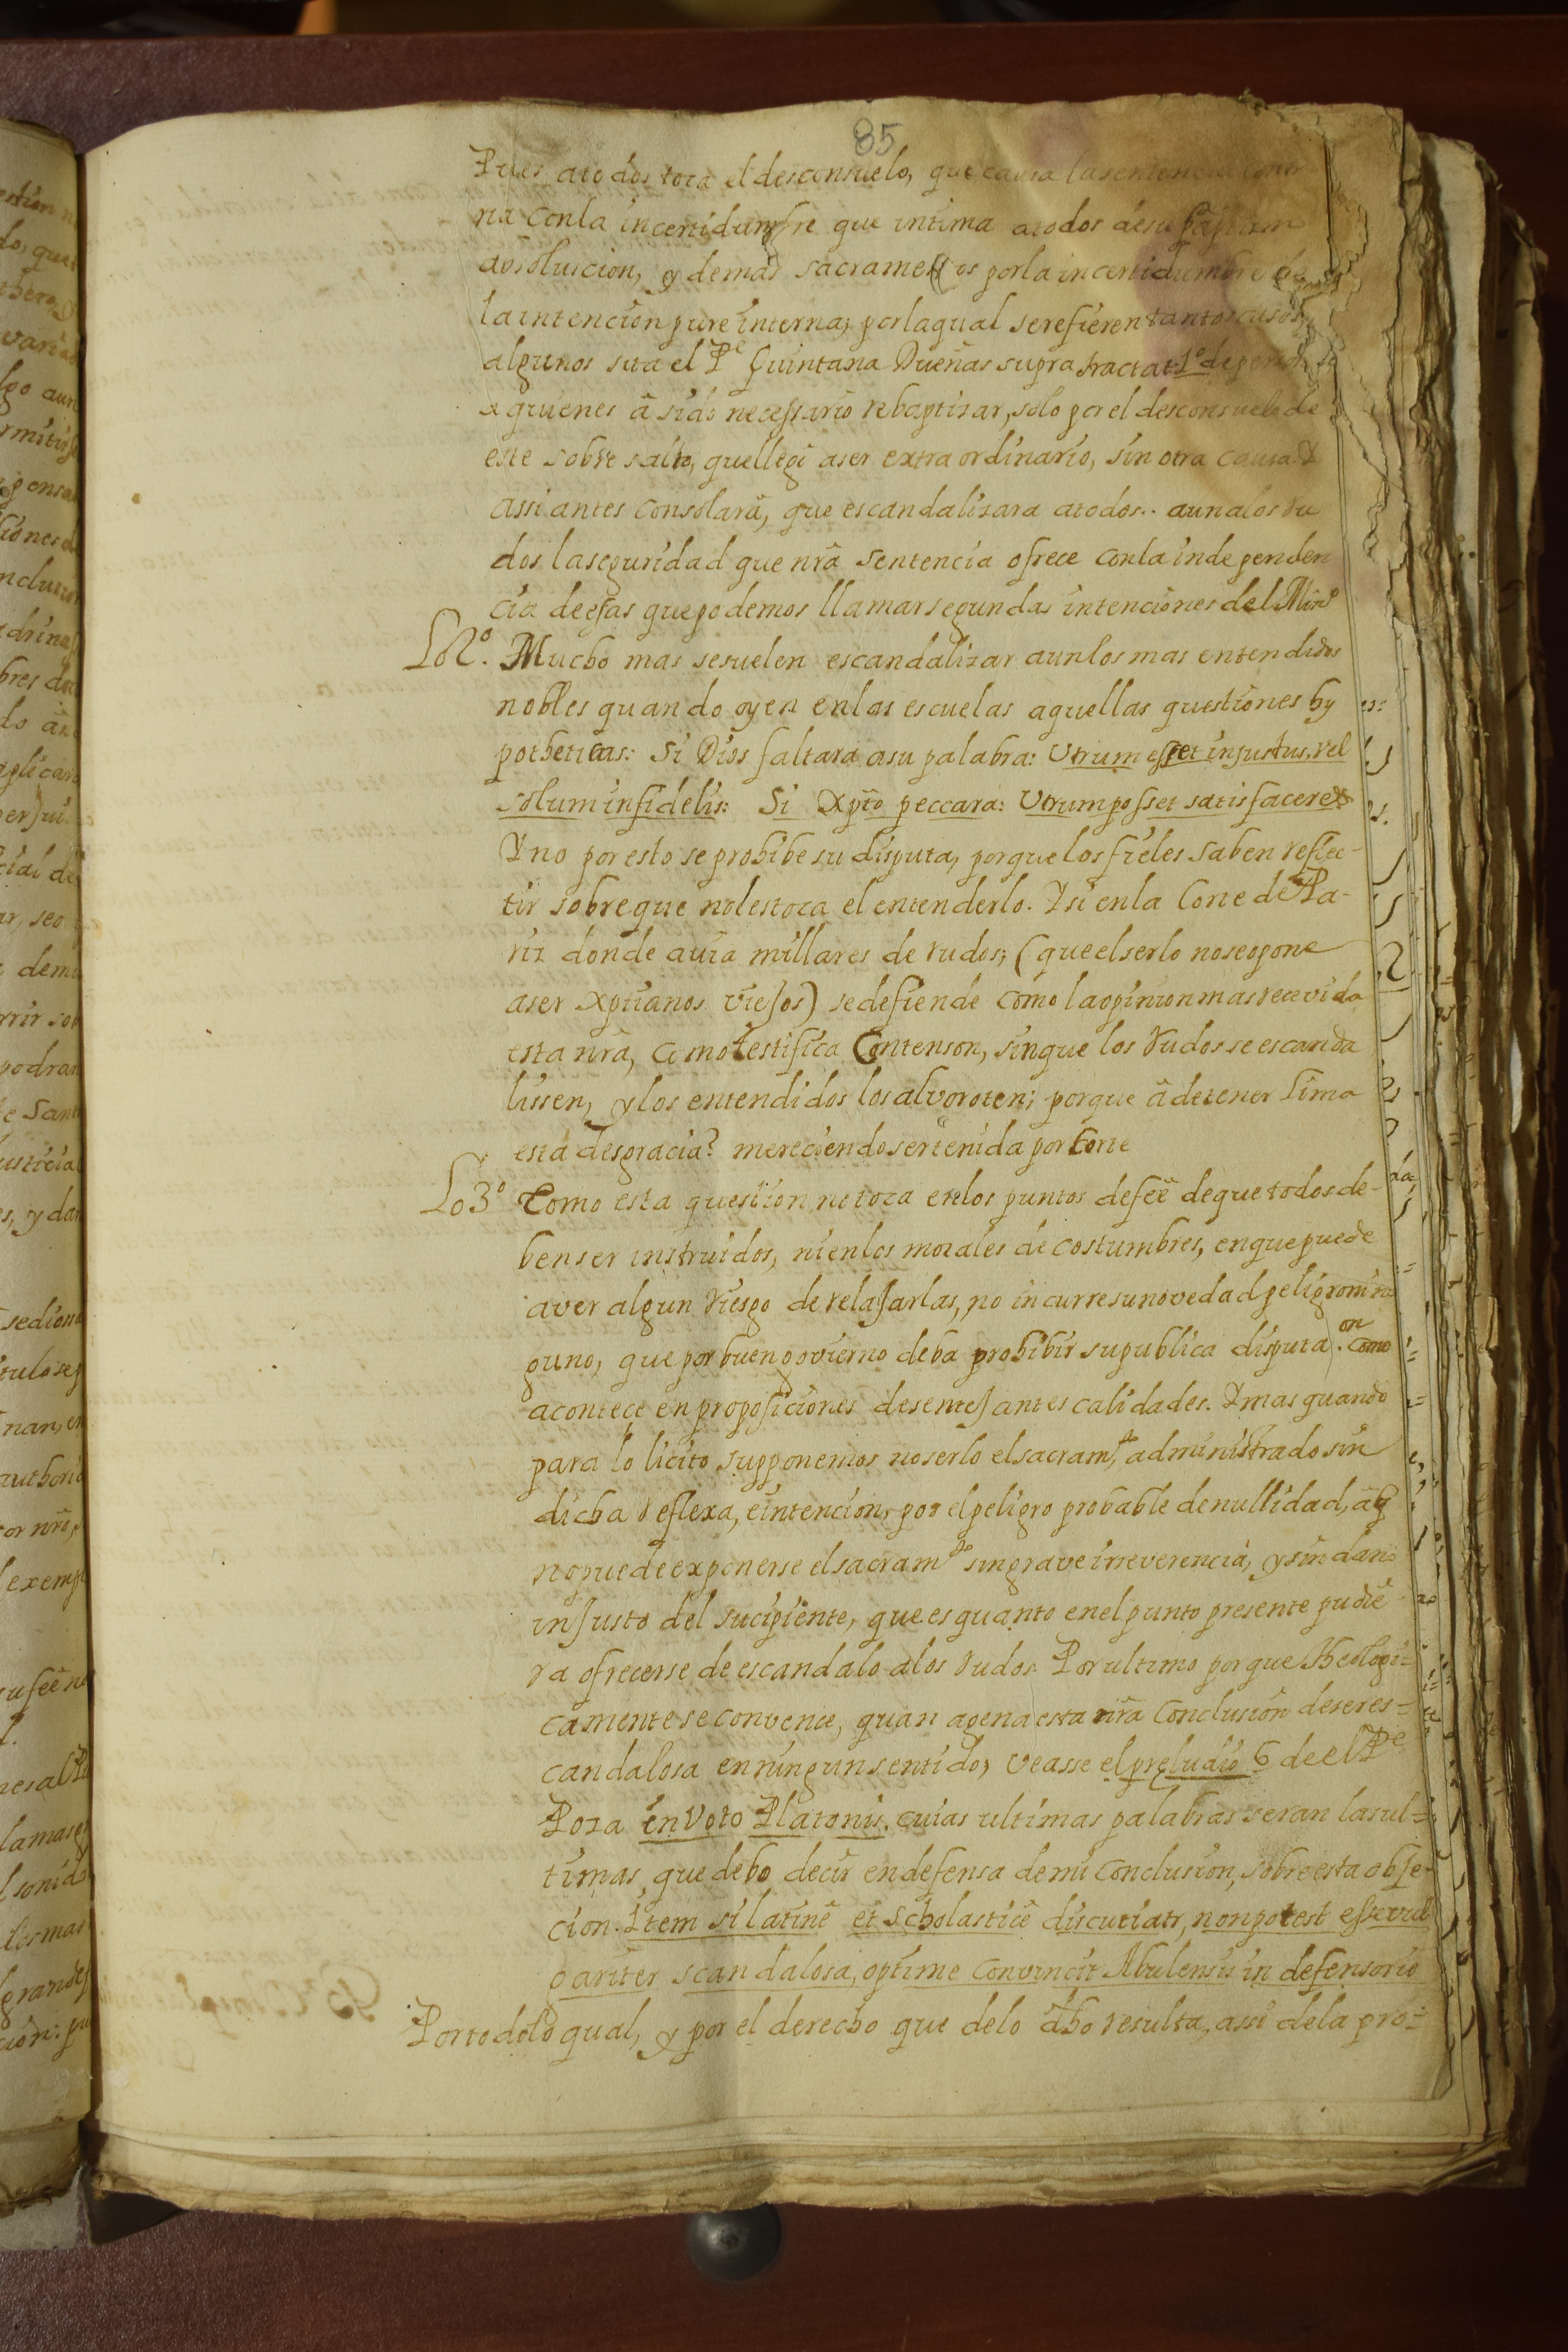 85
Pues atodos toca el desconsuelo, que causa la sentencia contra
ria conla incertidumbre que intima atodos desu baptismo
absoluicion, y demas sacramentos porla incertidumbre de
la intencion pure interna; porlaqual se refieren tantos casos,
algunos sita el Pe Quintana Dueñas supra tractat 1º de
a quienes â sido necessario rebaptizar, solo por el desconsuelo de
este sobre salto, quellegó aser extra ordinario, sin otra causa. Y
assi antes consolarâ, que escandalizara atodos.. aunalos ru
dos laseguridad que nrâ sentencia ofrece conla independen
cia deesas quepodemos llamarsegundas intenciones del Minº
Lo2º. Mucho mas sesuelen escandalizar aunlos mas entendidos
nobles quando oyen enlas escuelas aquellas questiones hy
potheticas: Si Dios faltara asu palabra: Utrum esset injustus, vel
solum infidelis: Si Xpto peccara: Utrum posset satisfacere &
Y no por esto se prohibe su disputa, porque los fieles saben reflec-
tir sobreque nolestoca el entenderlo. Y si enla Corte de Pa-
riz donde avia millares de rudos; (que elserlo noseopone
aser xptianos viejos) sedefiende como laopinion mas recevida
esta nrâ, como testifica Contenson, sinque los rudos se escanda
lissen, y los entendidos los alvoroten; porque â detener Lima
esta desgracia? mereciendo sertenida por Corte
Lo3º Como esta question notoca enlos puntos defeê dequetodosde-
benser instruidos, nienlos morales de costumbres, enquepuede
aver algun riesgo de relajarlas, no incurresunovedad peligro nin
guno, que por buen govierno deba prohibir supublica disputa. como
on
acontece en proposiciones desemejantes calidades. Y mas quando
para lo licito supponemos noserlo elsacramto, administrado sin
dicha reflexa, eintencion, por elpeligro probable denullidad, âq
nopuedeexponerse elsacramto singrave irreverencia, y sin daño
injusto del sucipiente, que es quanto enelpunto presente pudie
ra ofrecerse de escandalo alos rudos. Por ultimo porque Theologi=
camentese convence, quan agena esta nrâ Conclusion deseres=
candalosa enningunsentido, veasse el preludio 6 de el Pe
Poza en Voto Platonis, cuias ultimas palabras seran lasul=
timas, que debo decir endefensa demi conclusion, sobre esta obje-
cion. Item si latinê et scholasticê discutiatr, non potest esse vul
gariter scandalosa, optime convincit Abulensis in defensorio
Portodolo qual, y por el derecho que delo dho resulta, assi dela pro=